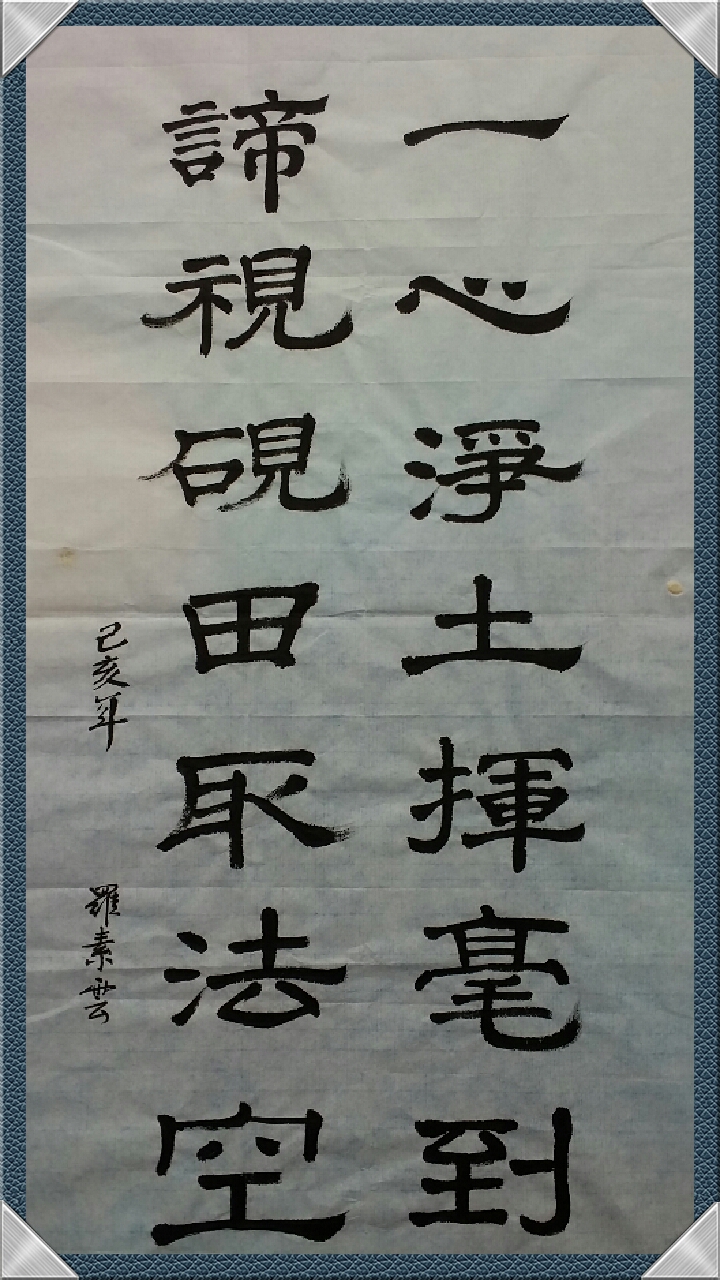 一心淨土揮毫到
諦視硯田取法空
己亥年
羅素雲